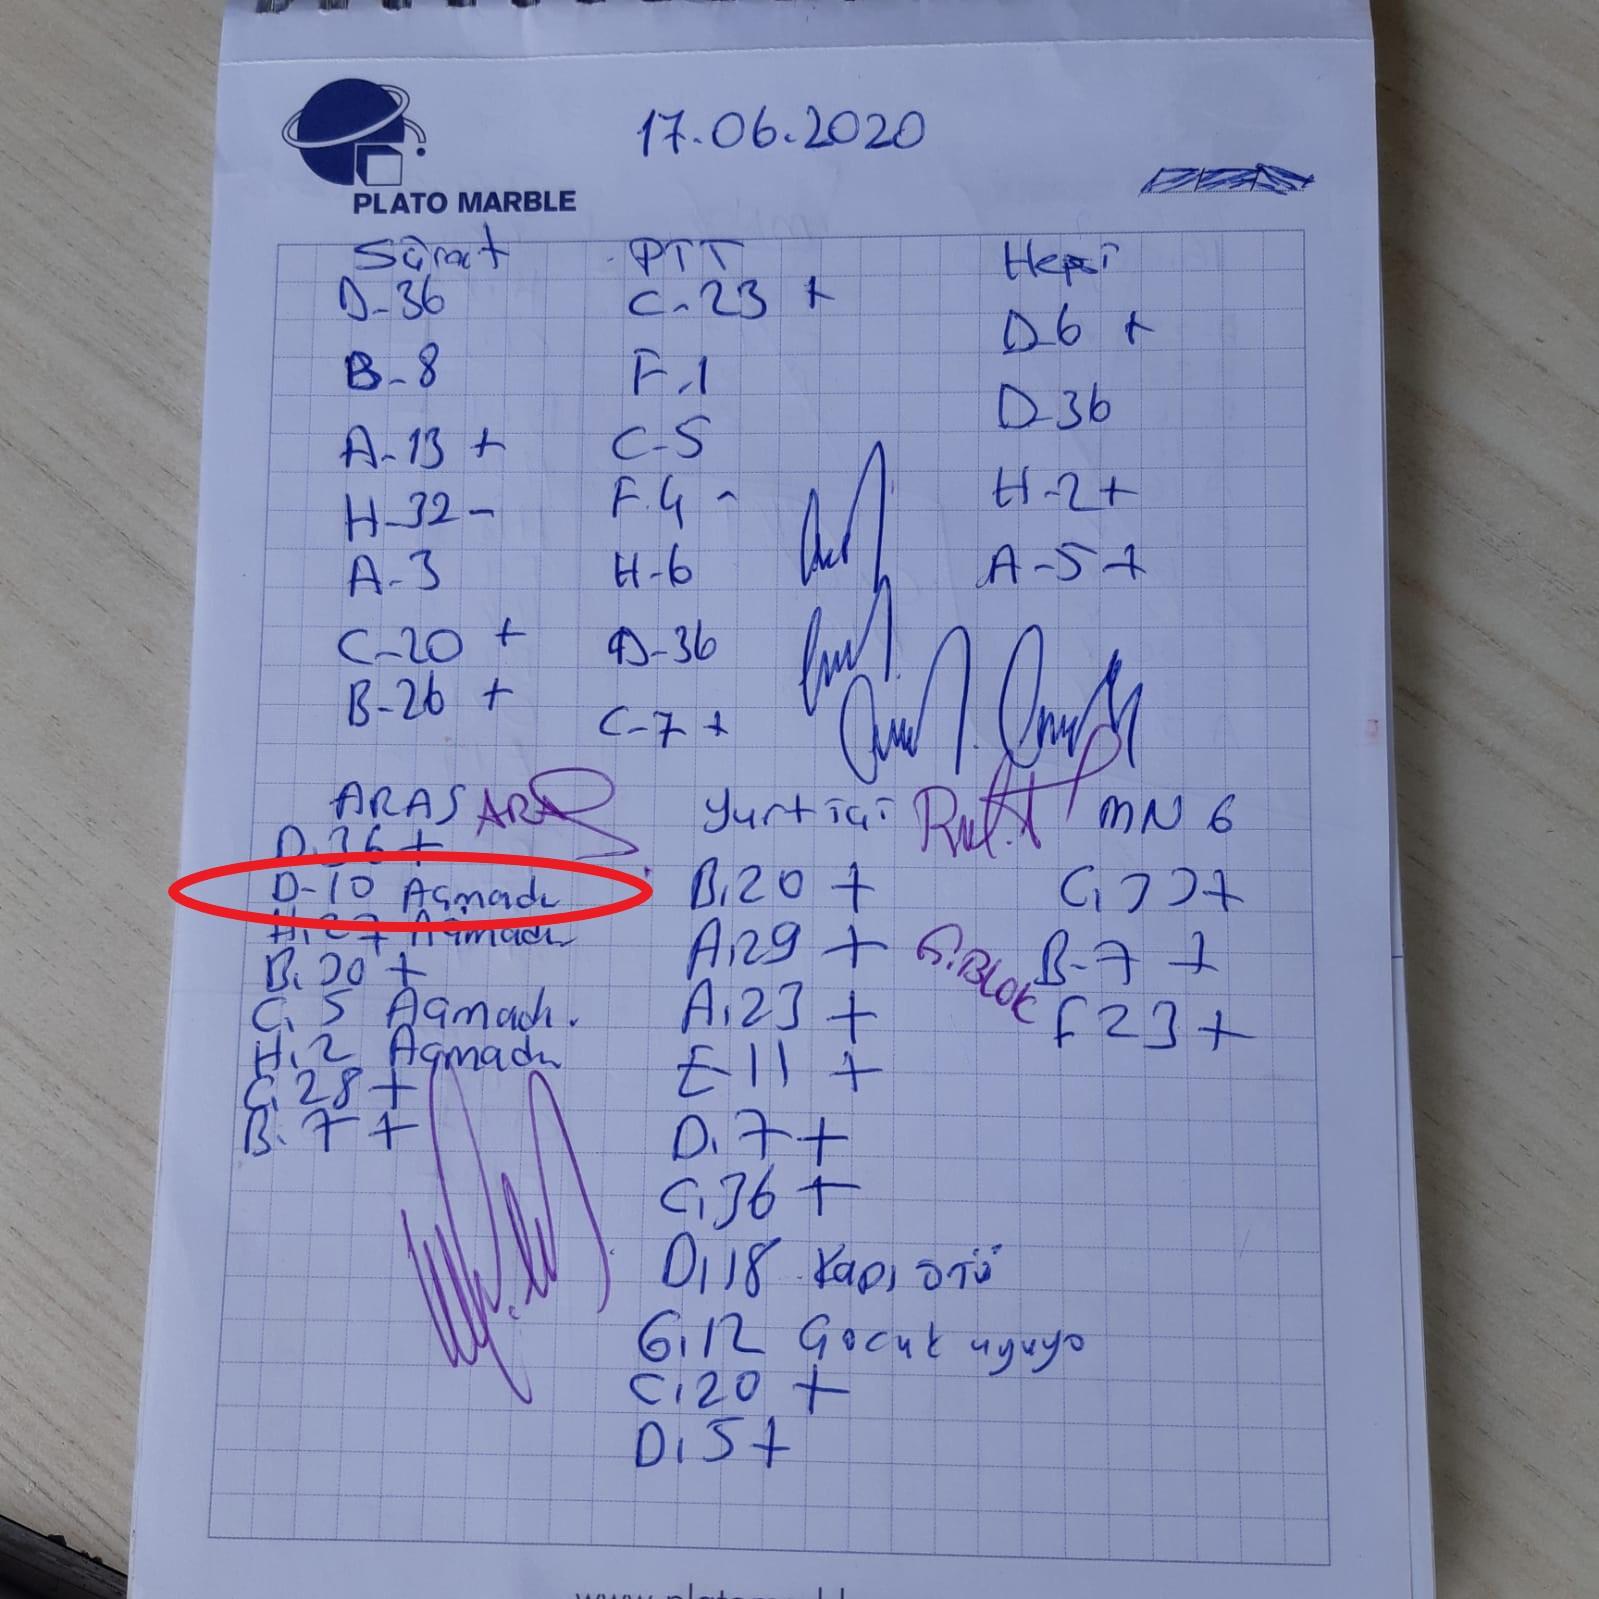 17.06.2020
PLATO MARBLE
Sürat
D-36
B-8
A-13 +
H-32 -
A-3
C-20 +
B-26 +
PTT
C-23 +
F-1
C-5
F.4 -
H-6
D-36
C-7 +
Hepsi
D6 +
D-36
H-2+
A-5+
ARAS ARAS
D.36 +
D-10 Açmadı
H.27 Açmadı
B.20 +
C. 5 Açmadı.
H.2 Açmadı
C.28 +
B. 7 +
Yurtiçi
B.20 +
A.29 +
A.23 +
E-11 +
D.7 +
C.36 +
D.18 Kapı ötü
G.12 Çocuk uyuyo
C.20 +
D.5 +
MNG
C.33+
G.BLOK
B-7 +
F23+